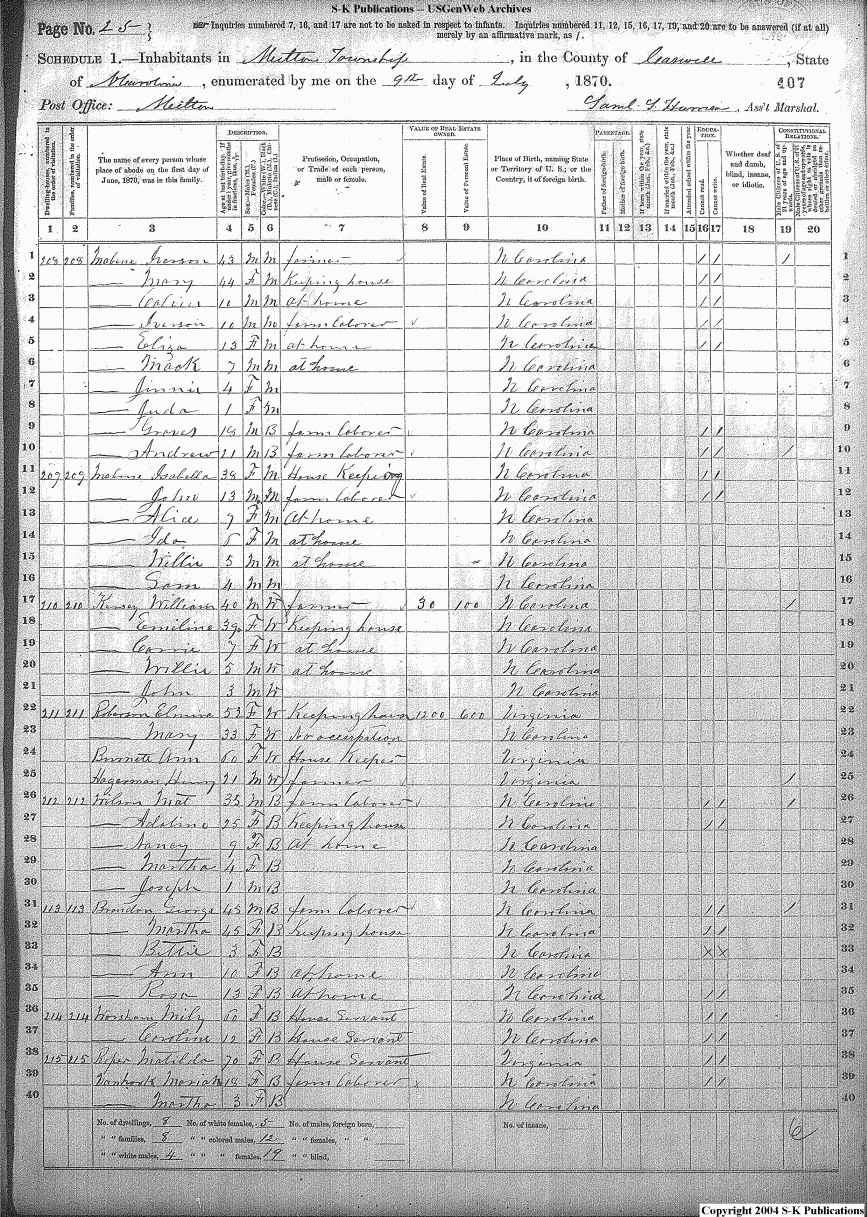 S-K Publications – USGenWeb Archives
Page No. 25
Inquiries numbered 7, 16, and 17 are not to be asked in respect to infants. Inquiries numbered 11, 12, 15, 16, 17, 19, and 20 are to be answered (if at all) merely by an affirmative mark, as /.
Schedule 1.—Inhabitants in Milton Township, in the County of Caswell, State
of N Carolina, enumerated by me on the 9th day of July, 1870. 407
Post Office: Milton Saml, Ass't Marshal.
Dwelling-houses, numbered in the order of visitation.
Families, numbered in the order of visitation.
The name of every person whose place of abode on the first day of June, 1870, was in this family.
Description.
Age at last birth-day. If under 1 year, give months in fractions, thus, 3/12.
Sex.—Males (M.), Females (F.)
Color.—White (W.), Black (B.), Mulatto (M.), Chinese (C.), Indian (I.)
Profession, Occupation, or Trade of each person, male or female.
Value of Real Estate owned.
Value of Real Estate.
Value of Personal Estate.
Place of Birth, naming State or Territory of U. S.; or the Country, if of foreign birth.
Parentage.
Father of foreign birth.
Mother of foreign birth.
If born within the year, state month (Jan., Feb., &c.)
If married within the year, state month (Jan., Feb., &c.)
Attended school within the year.
Education.
Cannot read.
Cannot write.
Whether deaf and dumb, blind, insane, or idiotic.
Constitutional Relations.
Male Citizens of U. S. of 21 years of age and upwards.
1 2 3 4 5 6 7 8 9 10 11 12 13 14 15 16 17 18 19 20
1 208 208 Mabene Iverson 43 M M farmer N Carolina / / / 1
2 — Mary 44 F M Keeping house N Carolina / / 2
3 — 10 M M at home N Carolina / / 3
4 — Iverson 10 M M farm laborer N Carolina / / 4
5 — Eliza 13 F M at home N Carolina / / 5
6 — Mack 7 M M at home N Carolina 6
7 — Jinnie 4 F M N Carolina 7
8 — Juda 1 F M N Carolina 8
9 — Graves 18 M B farm laborer N Carolina / / 9
10 — Andrew 21 M B farm laborer N Carolina / / / 10
11 209 209 Mabene Isabella 38 F M House Keeping N Carolina / / 11
12 — John 13 M M farm laborer N Carolina / / 12
13 — Alice 7 F M At home N Carolina 13
14 — Ida F M at home N Carolina 14
15 — Willie 5 M M at home N Carolina 15
16 — Sam 4 M M N Carolina 16
17 210 210 Kersey William 40 M W farmer 30 100 N Carolina / 17
18 — Emiline 39 F W Keeping house N Carolina 18
19 — Carrie 7 F W at home N Carolina 19
20 — Willie 5 M W at home N Carolina 20
21 — John 3 M W N Carolina 21
22 211 211 Roberson Elmira 53 F W Keeping house 1200 600 Virginia 22
23 — Mary 33 F W No occupation N Carolina 23
24 Burnett Ann 60 F W House Keeper Virginia 24
25 Hagerman Henry 21 M W farmer Virginia / 25
26 212 212 Wilson Mat 35 M B farm laborer N Carolina / / / 26
27 — Adaline 25 F B Keeping house N Carolina / / 27
28 — Nancy 9 F B At home N Carolina 28
29 — Martha 4 F B N Carolina 29
30 — Joseph 1 M B N Carolina 30
31 113 113 Brandon George 45 M B farm laborer N Carolina / / / 31
32 — Martha 45 F B keeping house N Carolina / / 32
33 — Bettie 3 F B N Carolina x x 33
34 — Ann 10 F B at home N Carolina 34
35 — Rosa 13 F B At home N Carolina / / 35
36 214 214 Worsham Mily 60 F B House Servant N Carolina / / 36
37 — Caroline 12 F B House Servant N Carolina / / 37
38 215 115 Roper Matilda 70 F B House Servant Virginia / / 38
39 Vanhook Mariah 18 F B farm laborer N Carolina / / 39
40 — Martha 3 F B N Carolina 40
No. of dwellings, 8 No. of white females, 5 No. of males, foreign born, No. of insane, 6
" " families, 8 " " colored males, 12 " " females, " "
" " white males, 4 " " " females, 19 " " blind,
Copyright 2004 S-K Publications